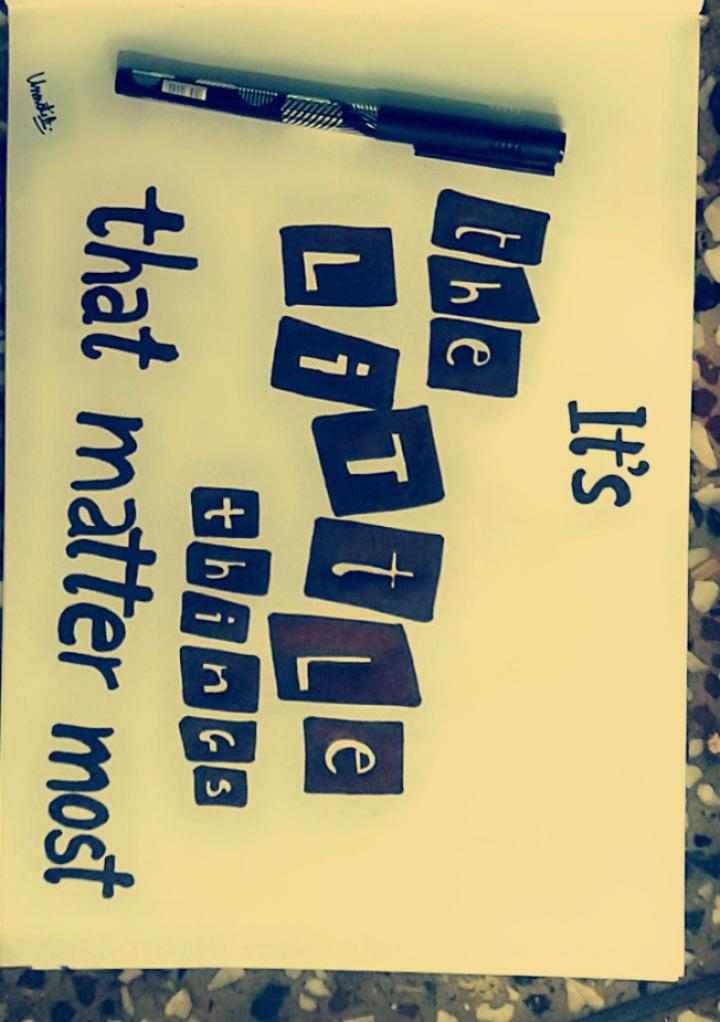 It's
the
LiTtLe
thinGs
that matter most